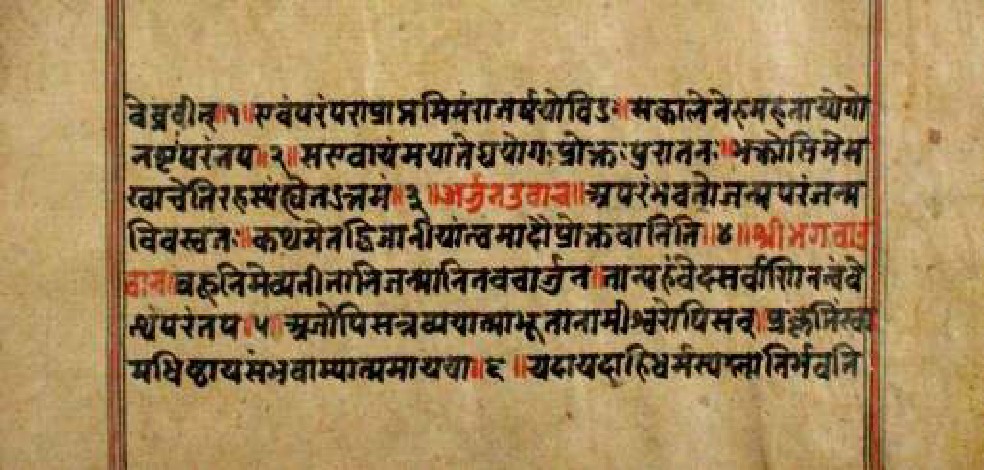 वेब्रवीत्॥१॥एवंपरंपराप्राप्तमिमंराजर्षयोविदुः॥सकालेनेहमहतायोगो
नष्टःपरंतप॥२॥सएवायंमयातेद्ययोगःप्रोक्तःपुरातनः॥भक्तोसिमेस
खाचेतिरहस्यंह्येतदुत्तमं॥३॥अर्जुनउवाच॥अपरंभवतोजन्मपरंजन्म
विवस्वतः॥कथमेतद्विजानीयांत्वमादौप्रोक्तवानिति॥४॥श्रीभगवानु
वाच॥बहूनिमेव्यतीतानिजन्मानितवचार्जुन॥तान्यहंवेदसर्वाणिनत्वंवे
त्थपरंतप॥५॥अजोपिसन्नव्ययात्माभूतानामीश्वरोपिसन्॥प्रकृतिंस्वा
मधिष्ठायसंभवाम्यात्ममायया॥६॥यदायदाहिधर्मस्यग्लानिर्भवति